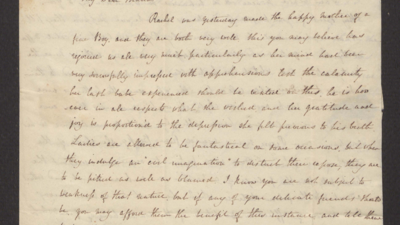 My dear
Rachel was yesterday made the happy mother of a
fine Boy, and they are both very well this you may believe has
rejoiced us all very much, particularly as her mind has been
very dreadfully impressed with apprehensions lest the calamity
her last babe experienced should be entailed on this, he is how
ever in all respects what she wished and her gratitude and
joy is proportion'd to the depression she felt previous to his birth
Ladies are allowed to be fantastical on some occasions, but when
they indulge an "evil imagination" to disturb their repose, they are
to be pitied as well as blamed. I know you are not subject to
weakness of that nature but if any of your delicate friends should
be you may afford them the benefit of this instance and tell them